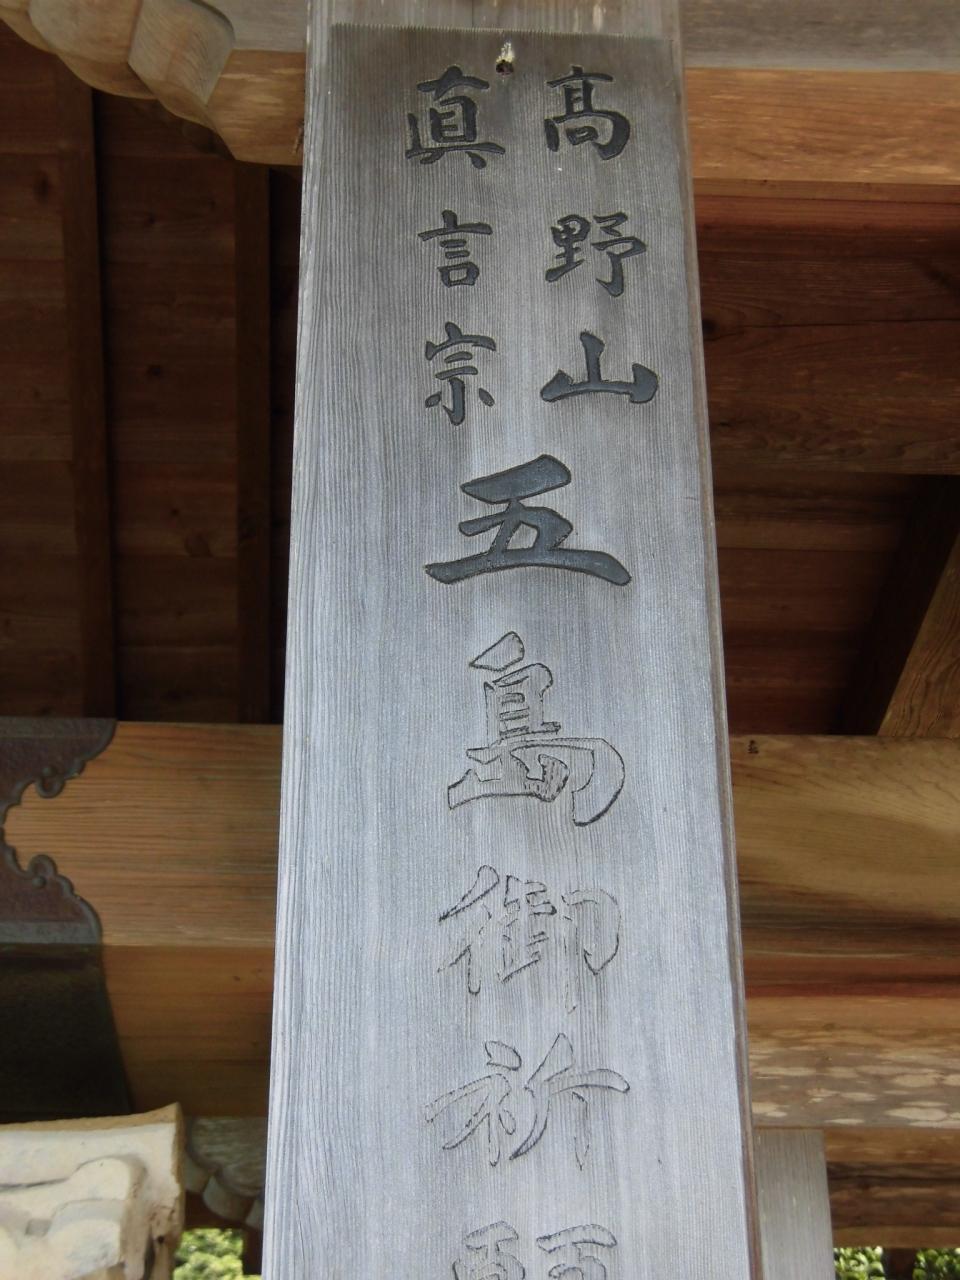 高野山
真言宗
五島御祈